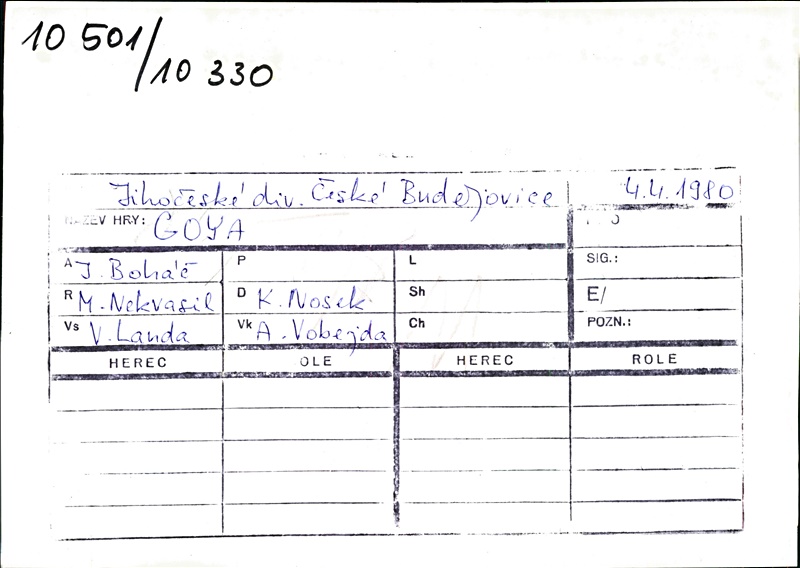 10 501/
10 330
Jihočeské div. České Budějovice 4.4.1980
NÁZEV HRY: GOYA
A J. Boháč P L SIG.:
R M. Nekvasil D K. Nosek Sh E/
Vs V. Landa Vk A. Vobejda Ch POZN.:
HEREC OLE HEREC ROLE